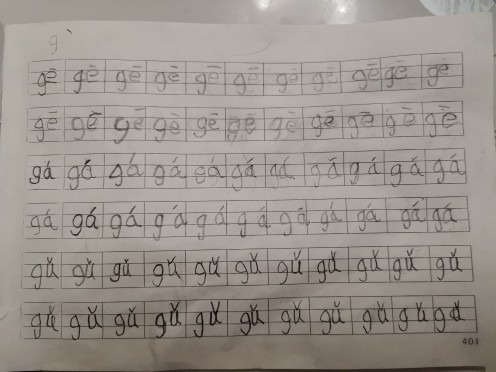 g
gē gē gē gē gē gē gē gē gē gē gē
gē gē gē gē gē gē gē gē gē gē gē
gá gá gá gá gá gá gá gá gá gá gá
gá gá gá gá gá gá gá gá gá gá gá
gǔ gǔ gǔ gǔ gǔ gǔ gǔ gǔ gǔ gǔ gǔ
gǔ gǔ gǔ gǔ gǔ gǔ gǔ gǔ gǔ gǔ gǔ
401